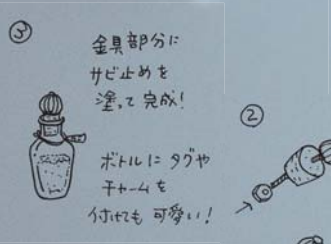 ③
金具部分に
サビ止めを
塗って完成!
ボトルにタグや
チャームを
付けても可愛い!
②